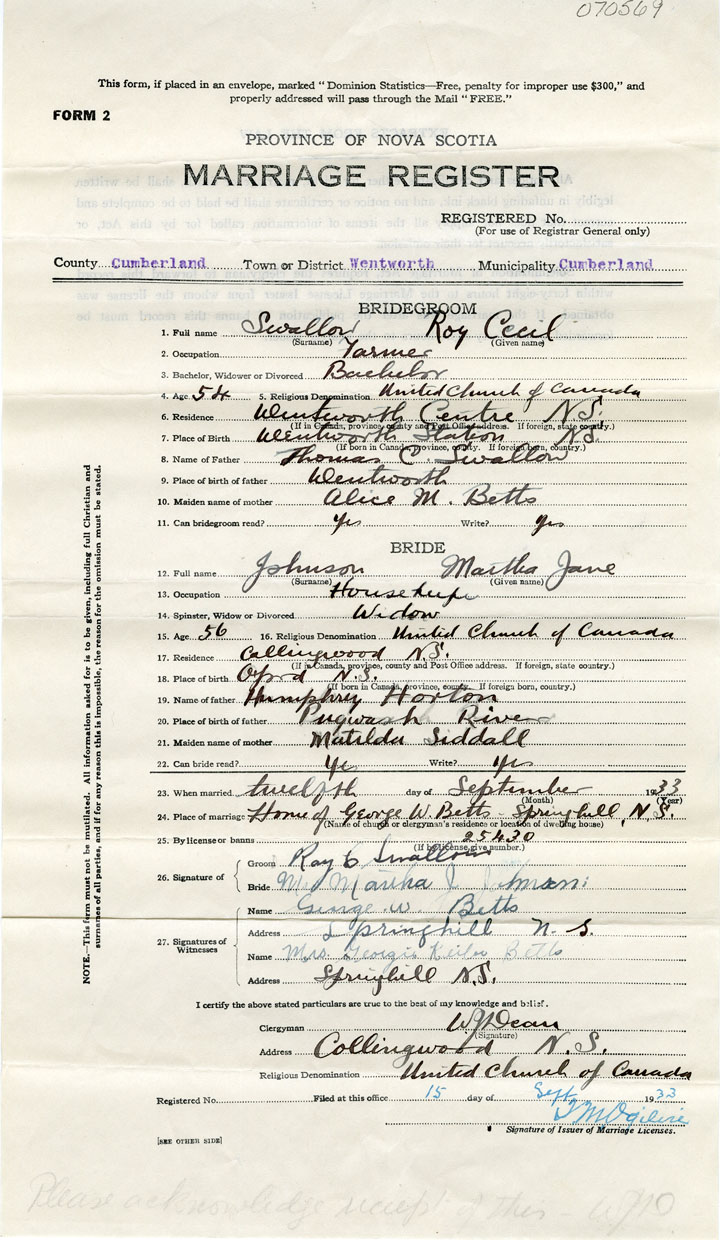 070569
This form, if placed in an envelope, marked "Dominion Statistics—Free, penalty for improper use $300," and
properly addressed will pass through the Mail "FREE."
FORM 2
PROVINCE OF NOVA SCOTIA
MARRIAGE REGISTER
REGISTERED No.
(For use of Registrar General only)
County Cumberland Town or District Wentworth Municipality Cumberland
BRIDEGROOM
1. Full name Swallow Roy Cecil
(Surname) (Given name)
2. Occupation Farmer
3. Bachelor, Widower or Divorced Bachelor
4. Age 54 5. Religious Denomination United Church of Canada
6. Residence Wentworth Centre N.S.
(If in Canada, province, county and Post Office address. If foreign, state country.)
7. Place of Birth Wentworth Station N.S.
(If born in Canada, province, county. If foreign born, country.)
8. Name of Father Thomas C. Swallow
9. Place of birth of father Wentworth
10. Maiden name of mother Alice M. Betts
11. Can bridegroom read? Yes Write? Yes
BRIDE
12. Full name Johnson Martha Jane
(Surname) (Given name)
13. Occupation Housekeep
14. Spinster, Widow or Divorced Widow
15. Age 56 16. Religious Denomination United Church of Canada
17. Residence Collingwood N.S.
(If in Canada, province, county and Post Office address. If foreign, state country.)
18. Place of birth Oxford N.S.
(If born in Canada, province, county. If foreign born, country.)
19. Name of father Humphrey Horton
20. Place of birth of father Pugwash River
21. Maiden name of mother Matilda Siddall
22. Can bride read? Yes Write? Yes
23. When married twelfth day of September 1933
(Month) (Year)
24. Place of marriage Home of George W. Betts - Springhill, N.S.
(Name of church or clergyman's residence or location of dwelling house)
25. By license or banns 25430
(If by license give number.)
26. Signature of Groom Roy C Swallow
Bride Mrs Martha J Johnson
27. Signatures of Witnesses Name George W. Betts
Address Springhill N. S.
Name Mrs. Georgie Betts
Address Springhill N.S.
I certify the above stated particulars are true to the best of my knowledge and belief.
Clergyman W J Dean
(Signature)
Address Collingwood N.S.
Religious Denomination United Church of Canada
Registered No. Filed at this office 15 day of Sept 1933
Signature of Issuer of Marriage Licenses.
[SEE OTHER SIDE]
Please acknowledge receipt of this - WJD
NOTE.—This form must not be mutilated. All information asked for is to be given, including full Christian and
surnames of all parties, and if for any reason this is impossible, the reason for the omission must be stated.